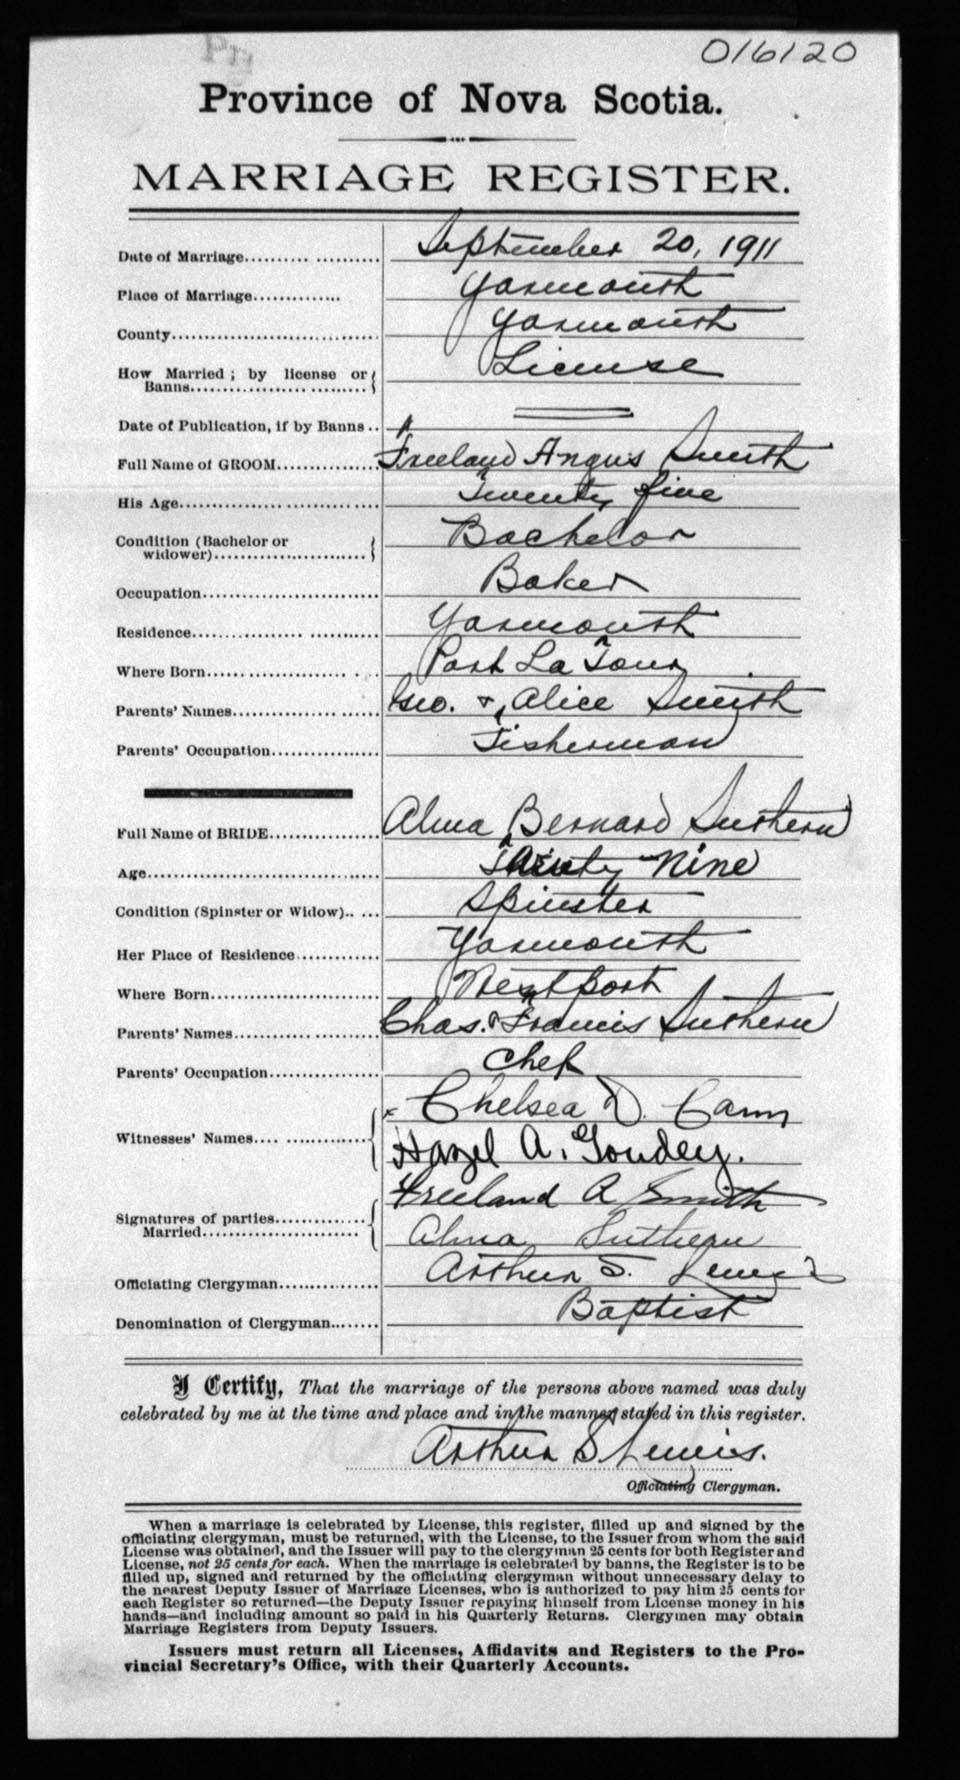 016120
Province of Nova Scotia.
MARRIAGE REGISTER.
Date of Marriage.......... .......... September 20, 1911
Place of Marriage.............. Yarmouth
County................................ Yarmouth
How Married ; by license or
Banns........................... License
Date of Publication, if by Banns ..
Full Name of GROOM............... Freeland Angus Smith
His Age.............................. Twenty five
Condition (Bachelor or
widower)......................... Bachelor
Occupation........................... Baker
Residence............................ Yarmouth
Where Born........................ Port La Tour
Parents' Names...................... Geo. & Alice Smith
Parents' Occupation................. Fisherman
Full Name of BRIDE................ Alma Bernard Suthern
Age................................... Nine
Condition (Spinster or Widow).. ... Spinster
Her Place of Residence............. Yarmouth
Where Born......................... Westport
Parents' Names...................... Chas. & Francis Suthern
Parents' Occupation................. Chef
x Chelsea D. Cann
Witnesses' Names.... ..............
Hazel A. Goudey.
Freeland A Smith
Signatures of parties...............
Married......................... Alma Suthern
Officiating Clergyman.............. Arthur S. Lewis
Denomination of Clergyman....... Baptist
I Certify, That the marriage of the persons above named was duly
celebrated by me at the time and place and in the manner stated in this register.
Arthur S Lewis.
Officiating Clergyman.
When a marriage is celebrated by License, this register, filled up and signed by the
officiating clergyman, must be returned, with the License, to the Issuer from whom the said
License was obtained, and the Issuer will pay to the clergyman 25 cents for both Register and
License, not 25 cents for each. When the marriage is celebrated by banns, the Register is to be
filled up, signed and returned by the officiating clergyman without unnecessary delay to
the nearest Deputy Issuer of Marriage Licenses, who is authorized to pay him 25 cents for
each Register so returned—the Deputy Issuer repaying himself from License money in his
hands—and including amount so paid in his Quarterly Returns. Clergymen may obtain
Marriage Registers from Deputy Issuers.
Issuers must return all Licenses, Affidavits and Registers to the Pro-
vincial Secretary's Office, with their Quarterly Accounts.